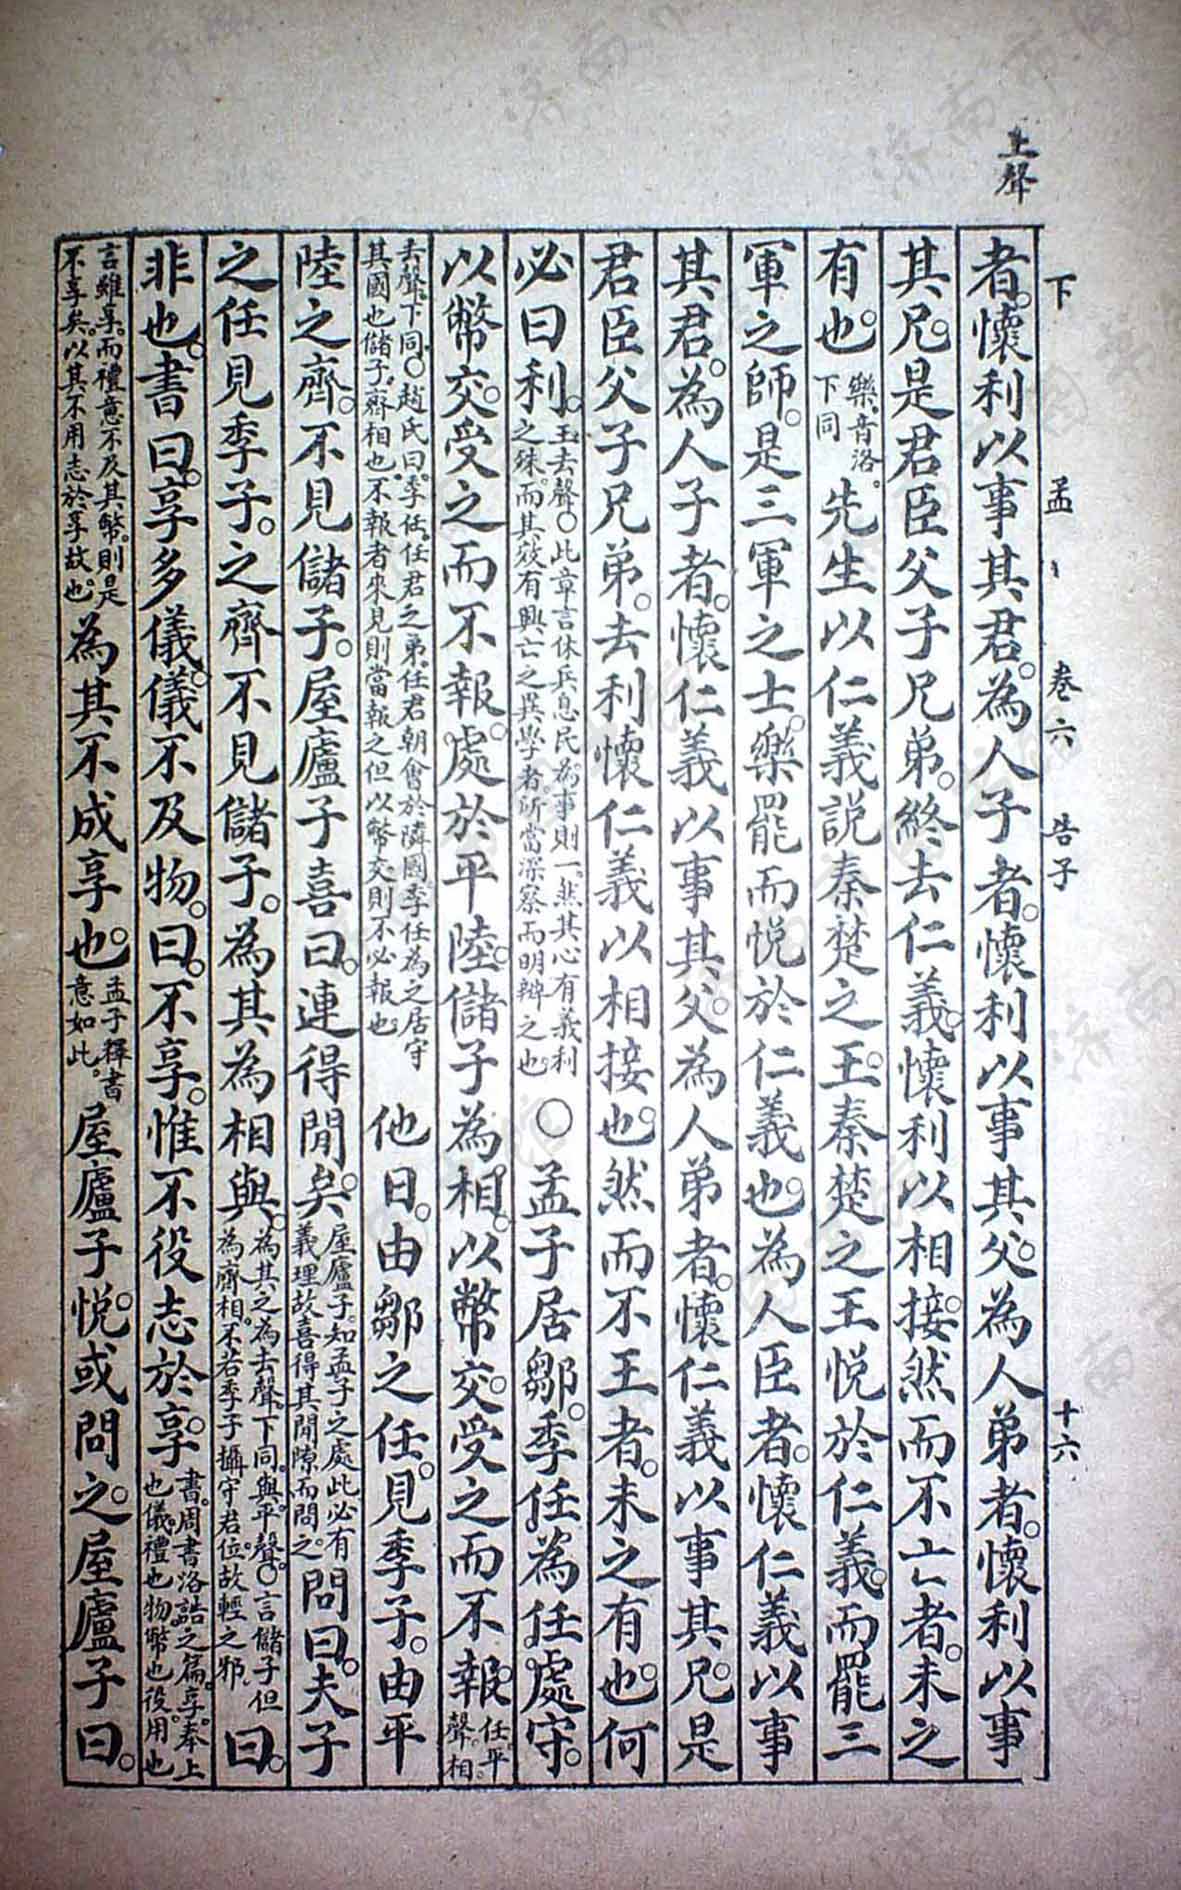 上聲
下孟 卷六 告子 十六
者。懷利以事其君。為人子者。懷利以事其父。為人弟者。懷利以事
其兄。是君臣父子兄弟。終去仁義。懷利以相接。然而不亡者。未之
有也。樂音洛。下同先生以仁義說秦楚之王。秦楚之王悅於仁義。而罷三
軍之師。是三軍之士。樂罷而悅於仁義也。為人臣者。懷仁義以事
其君。為人子者。懷仁義以事其父。為人弟者。懷仁義以事其兄。是
君臣父子兄弟。去利懷仁義以相接也。然而不王者。未之有也。何
必曰利。王去聲○此章言休兵息民。為事則一。然其心有義利之殊。而其效有興亡之異。學者所當深察而明辨之也。○孟子居鄒。季任為任處守。
以幣交。受之而不報。處於平陸。儲子為相。以幣交。受之而不報。任平聲。相。
去聲下同。○趙氏曰。季任。任君之弟。任君朝會於隣國季任為之居守其國也儲子齊相也。不報者來見則當報之但以幣交則不必報也他日。由鄒之任。見季子。由平
陸之齊。不見儲子。屋廬子喜曰。連得閒矣。屋廬子。知孟子之處此必有義理故喜得其閒隙而問之。問曰。夫子
之任見季子。之齊不見儲子。為其為相與。為其之為去聲下同。與平聲。○言儲子但為齊相。不若季子攝守君位。故輕之邪曰。
非也。書曰。享多儀。儀不及物。曰。不享。惟不役志於享。書。周書洛誥之篇。享。奉上也儀。禮也物幣也役。用也
言雖享。而禮意不及其幣。則是不享矣。以其不用志於享故也。為其不成享也。孟子釋書意如此。屋廬子悅。或問之。屋廬子曰。